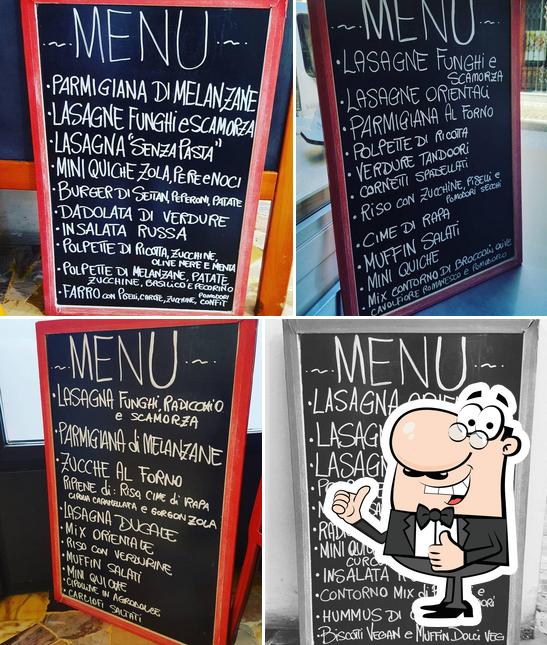 MENU
PARMIGIANA DI MELANZANE
LASAGNE FUNGHI e SCAMORZA
LASAGNA "SENZA PASTA"
MINI QUICHE ZOLA, PERE e NOCI
BURGER DI SEITAN, PEPERONI, PATATE
DADOLATA DI VERDURE
INSALATA RUSSA
POLPETTE DI RICOTTA, ZUCCHINE,
OLIVE NERE E MENTA
POLPETTE DI MELANZANE, PATATE
ZUCCHINE, BASILICO e PECORINO
FARRO CON PISELLI, CAROTE, ZUCCHINE, POMODORI
CONFIT
MENU
LASAGNE FUNGHI e
SCAMORZA
LASAGNE ORIENTALI
PARMIGIANA AL FORNO
POLPETTE DI RICOTTA
VERDURE TANDOORI
CORNETTI SPADELLATI
RISO CON ZUCCHINE, PISELLI e
POMODORI SECCHI
CIME DI RAPA
MUFFIN SALATI
MINI QUICHE
MIX CONTORNO DI BROCCOLI, OLIVE
CAVOLFIORE ROMANESCO e POMODORO
MENU
LASAGNA FUNGHI, RADICCHIO
e SCAMORZA
PARMIGIANA di MELANZANE
ZUCCHE AL FORNO
RIPIENE di: RISO CIME di RAPA
CIPOLLA CARAMELLATA e GORGONZOLA
LASAGNA DUCALE
MIX ORIENTALE
RISO CON VERDURINE
MUFFIN SALATI
MINI QUICHE
CIPOLLINE IN AGRODOLCE
CARCIOFI SALTATI
MENU
LASAGNA
LASAG
LASAG
MINI QUIC
INSALATA R
CONTORNO MIX di
HUMMUS DI
BISCOTTI VEGAN e MUFFIN DOLCI VEG